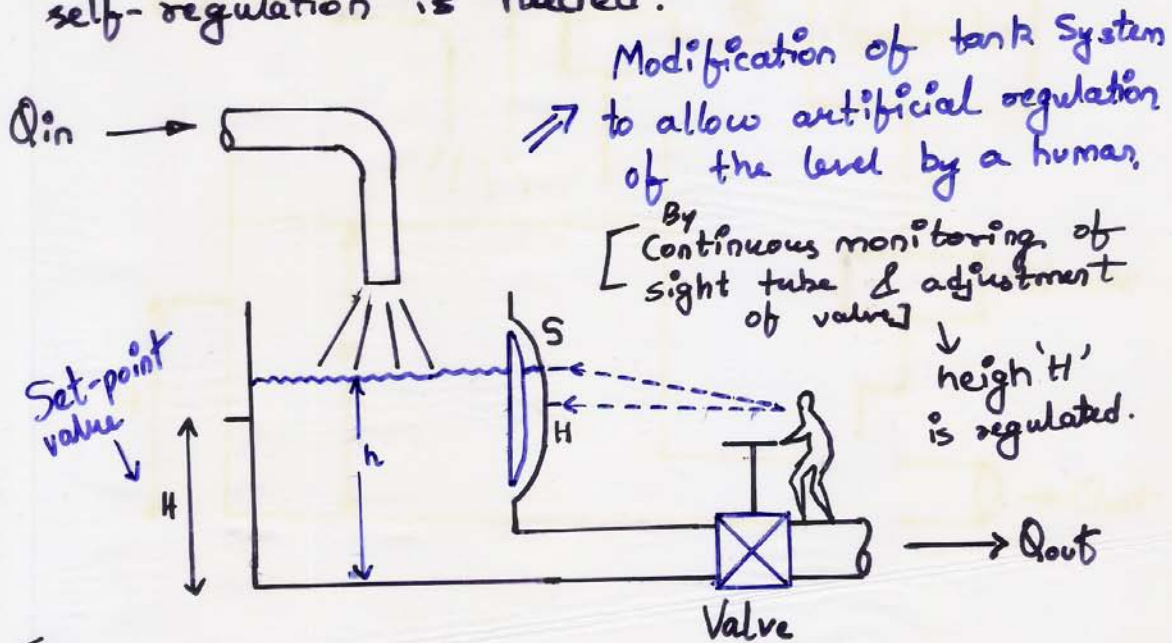 self-regulation is needed.
Modification of tank System
to allow artificial regulation
of the level by a human.
By
[Continuous monitoring of
sight tube & adjustment
of valve]
heigh 'H'
is regulated.
Qin
S
H
Set-point
value
h
H
Qout
Valve